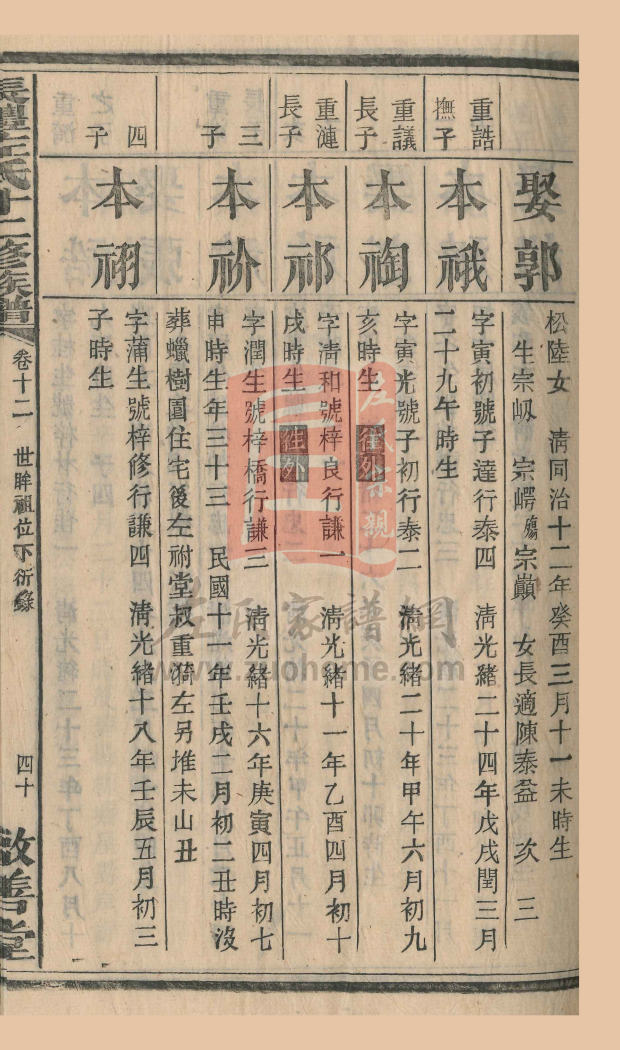 娶郭
松陸女　清同治十二年癸酉三月十一未時生
生宗㠱　宗㟧殤宗巔　女長適陳泰益　次　三
重誥
撫子
本䄉
字寅初號子達行泰四　清光緒二十四年戊戌閏三月
二十九午時生
重議
長子
本裪
字寅光號子初行泰二　清光緒二十年甲午六月初九
亥時生　往外
重漣
長子
本祁
字清和號梓良行謙一　清光緒十一年乙酉四月初十
戌時生　往外
三
子
本祄
字潤生號梓橋行謙三　清光緒十六年庚寅四月初七
申時生年三十三　民國十一年壬戌二月初二丑時沒
葬蠟樹園住宅後左祔堂叔重漪左另堆未山丑
四
子
本祤
字蒲生號梓修行謙四　清光緒十八年壬辰五月初三
子時生
左氏十二修族譜
卷十二
世眸祖位下衍錄
四十
敦善堂
左氏家譜網
www.zuohome.com